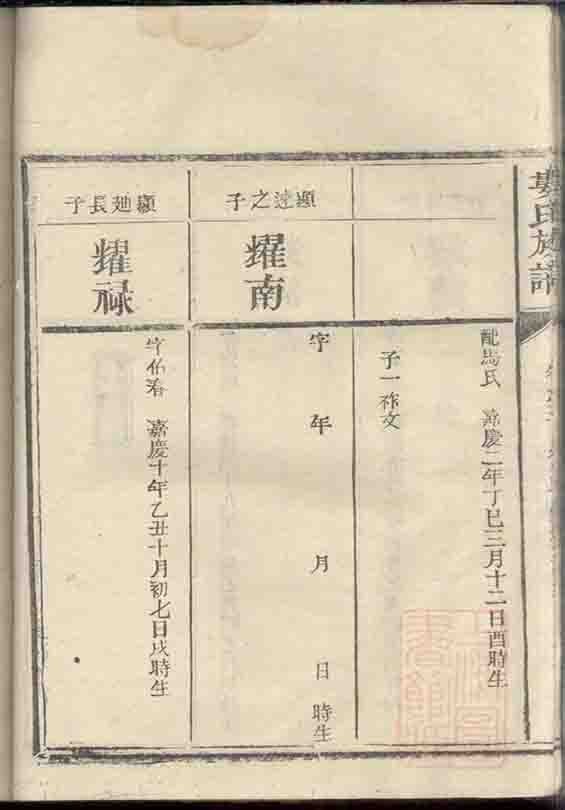 婁氏族譜
配馬氏 嘉慶二年丁巳三月十二日酉時生
子一祚文
顯達之子
耀南
字 年 月 日 時生
顯廸長子
耀禄
字佑春 嘉慶十年乙丑十月初七日戌時生